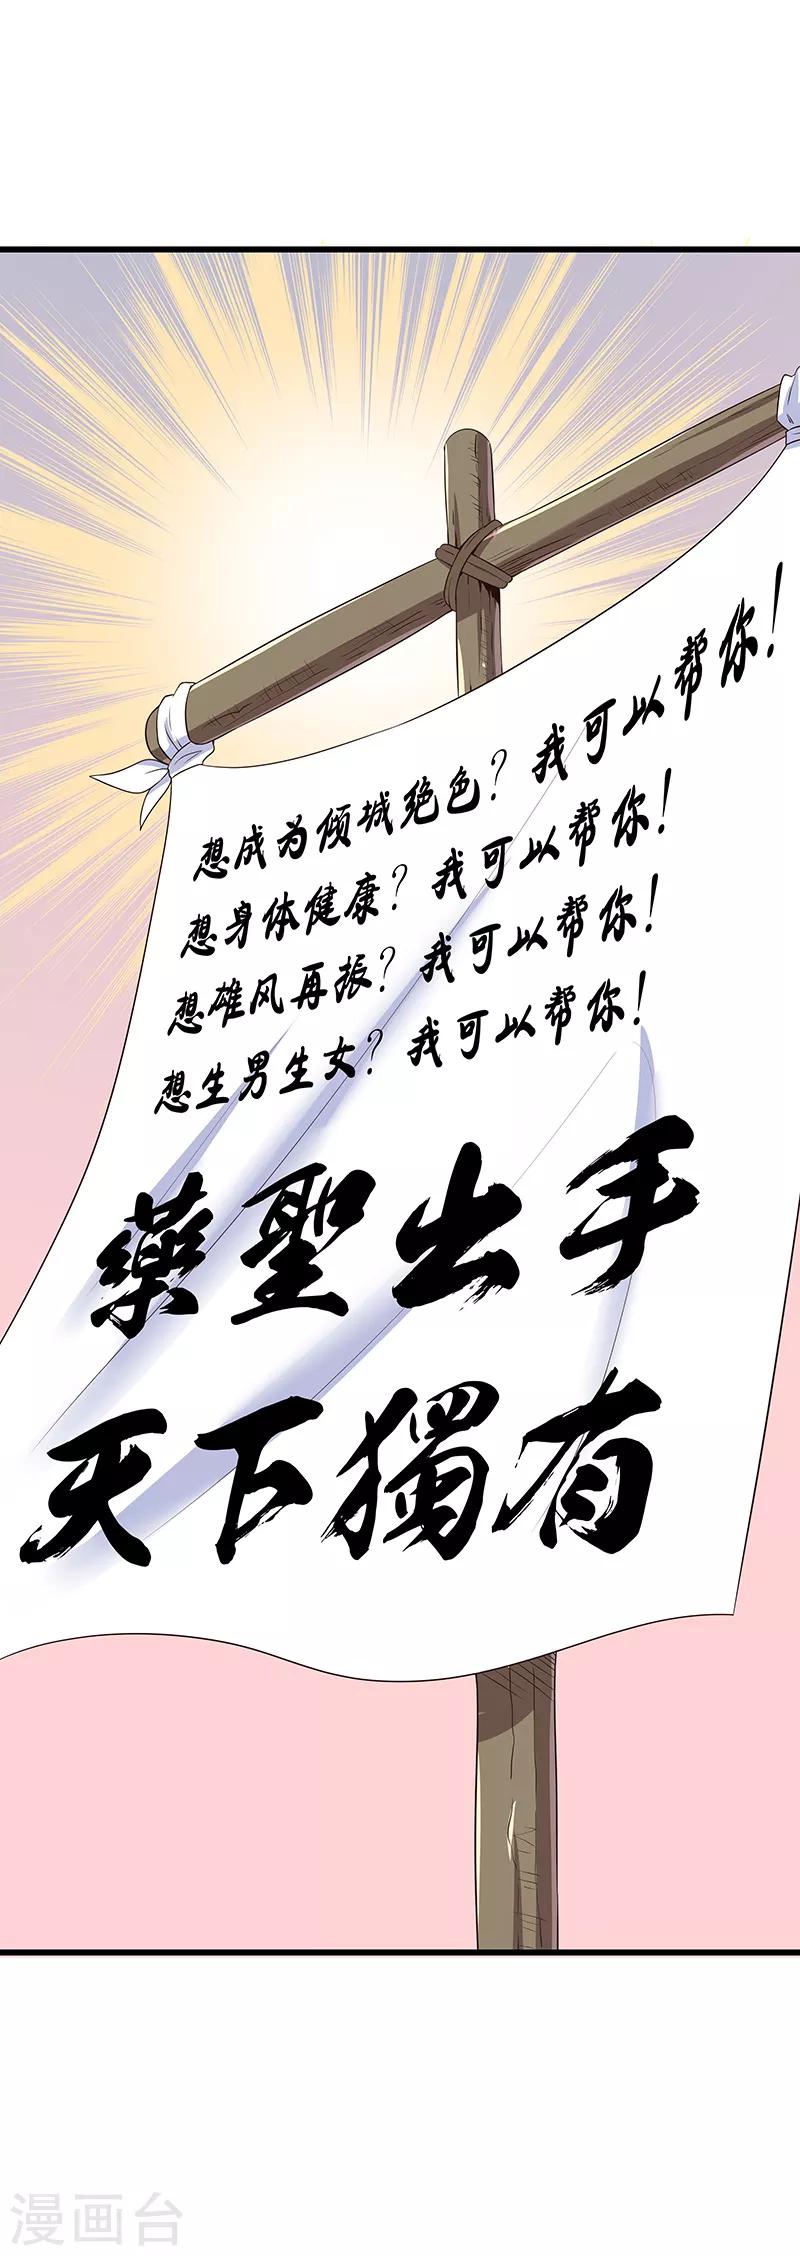 想成为倾城绝色？我可以帮你！
想身体健康？我可以帮你！
想雄风再振？我可以帮你！
想生男生女？我可以帮你！
藥聖出手
天下獨有
漫画台